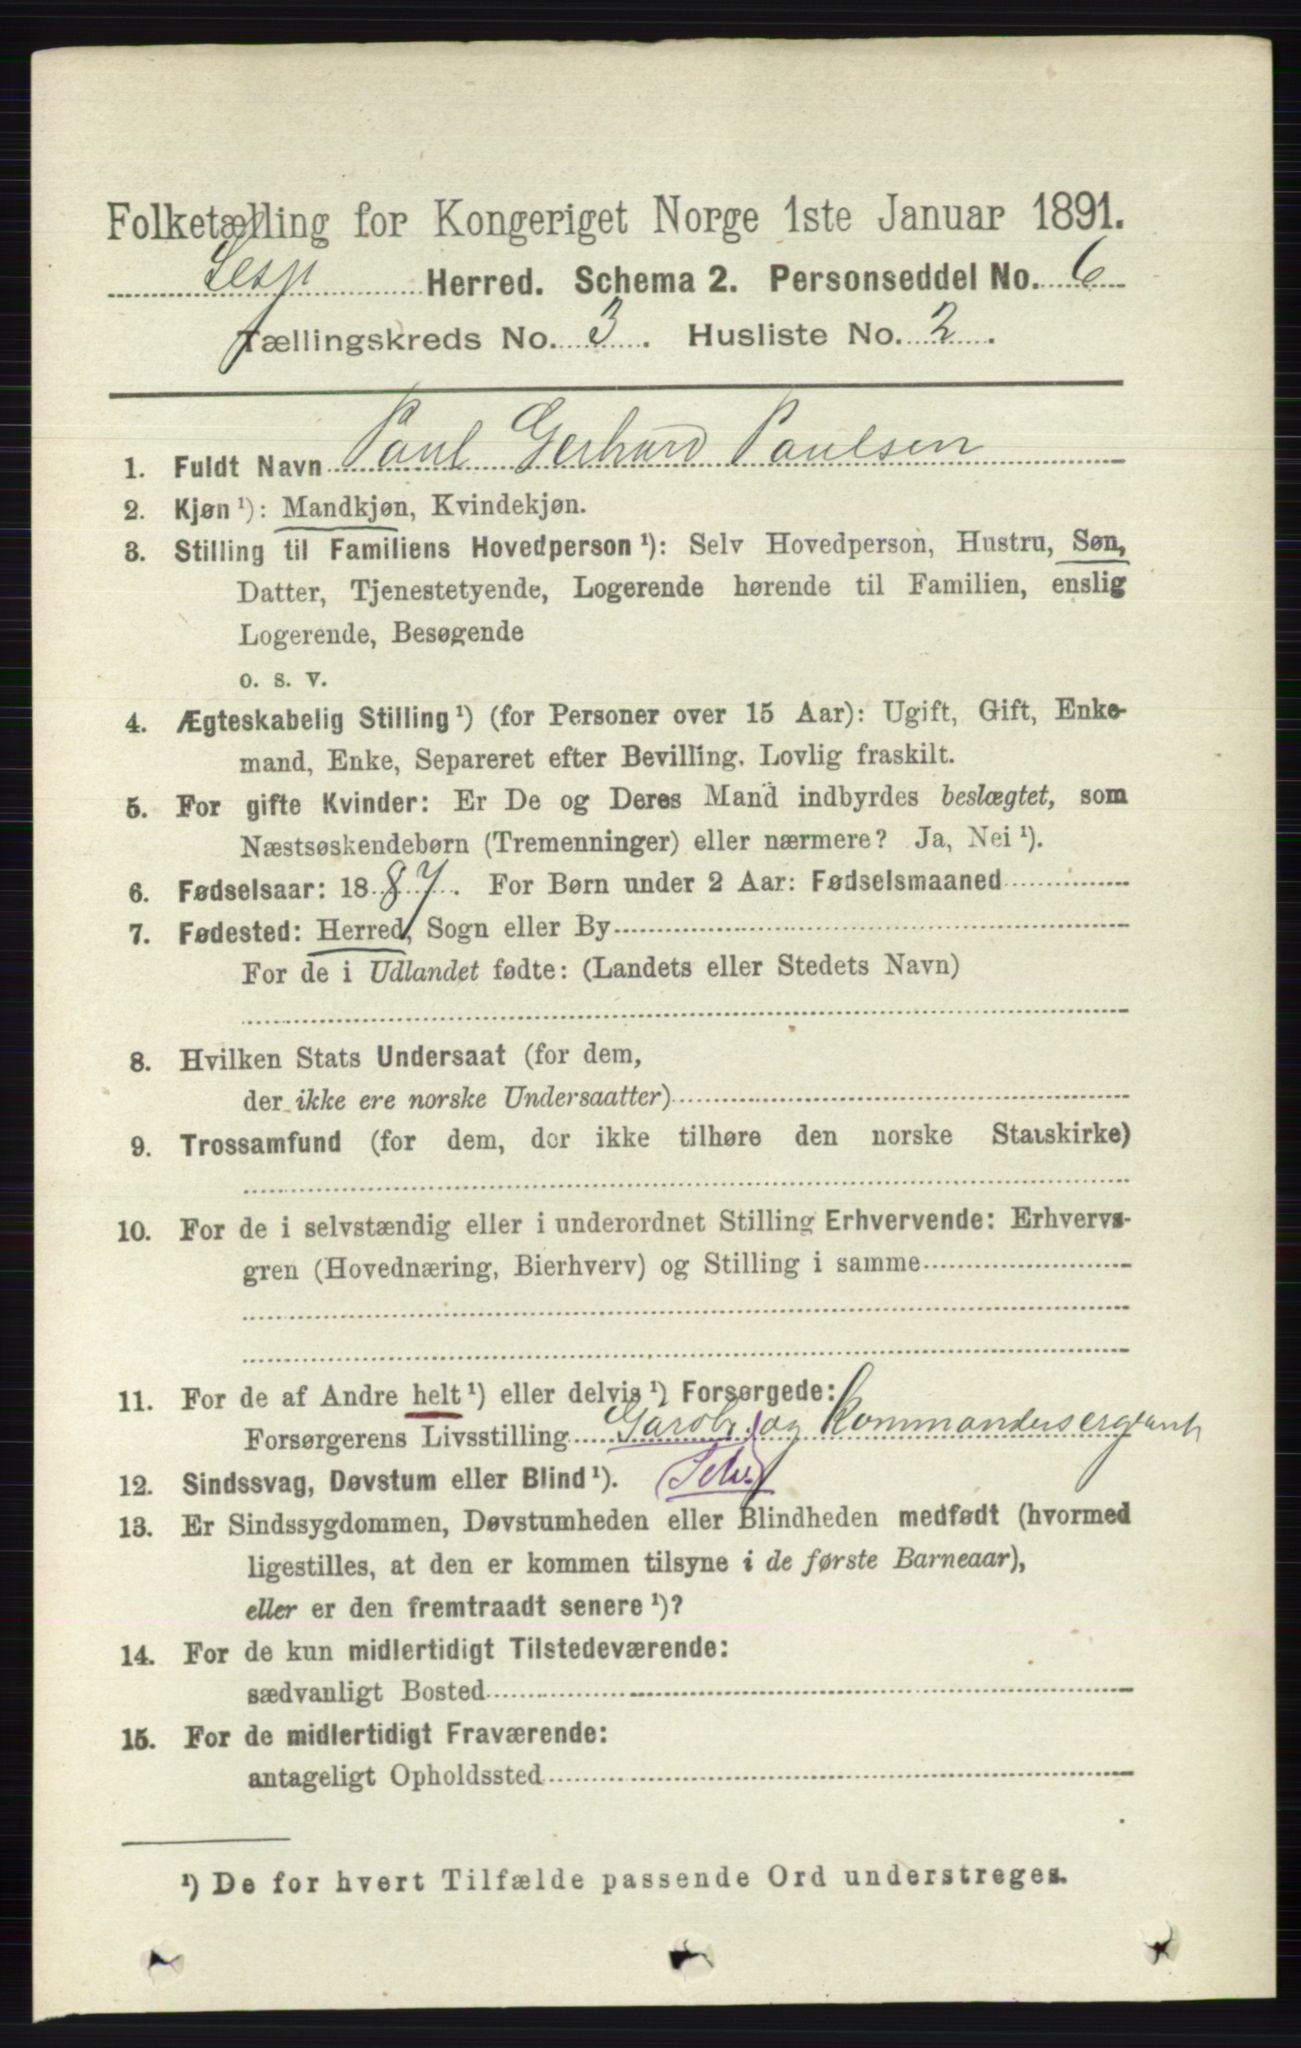 Folketælling for Kongeriget Norge 1ste Januar 1891.
Lesje Herred. Schema 2. Personseddel No. 6
Tællingskreds No. 3. Husliste No. 2.
1. Fuldt Navn Paul Gerhard Paulsen
2. Kjøn ¹): Mandkjøn, Kvindekjøn.
3. Stilling til Familiens Hovedperson ¹): Selv Hovedperson, Hustru, Søn,
Datter, Tjenestetyende, Logerende hørende til Familien, enslig
Logerende, Besøgende
o. s. v.
4. Ægteskabelig Stilling ¹) (for Personer over 15 Aar): Ugift, Gift, Enke-
mand, Enke, Separeret efter Bevilling. Lovlig fraskilt.
5. For gifte Kvinder: Er De og Deres Mand indbyrdes beslægtet, som
Næstsøskendebørn (Tremenninger) eller nærmere? Ja, Nei ¹).
6. Fødselsaar: 1887. For Børn under 2 Aar: Fødselsmaaned
7. Fødested: Herred, Sogn eller By
For de i Udlandet fødte: (Landets eller Stedets Navn)
8. Hvilken Stats Undersaat (for dem,
der ikke ere norske Undersaatter)
9. Trossamfund (for dem, der ikke tilhøre den norske Statskirke)
10. For de i selvstændig eller i underordnet Stilling Erhvervende: Erhvervs-
gren (Hovednæring, Bierhverv) og Stilling i samme
11. For de af Andre helt ¹) eller delvis ¹) Forsørgede:
Forsørgerens Livsstilling Gardbr. og Kommandersergeant
12. Sindssvag, Døvstum eller Blind ¹). (Selv.)
13. Er Sindssygdommen, Døvstumheden eller Blindheden medfødt (hvormed
ligestilles, at den er kommen tilsyne i de første Barneaar),
eller er den fremtraadt senere ¹)?
14. For de kun midlertidigt Tilstedeværende:
sædvanligt Bosted
15. For de midlertidigt Fraværende:
antageligt Opholdssted
¹) De for hvert Tilfælde passende Ord understreges.